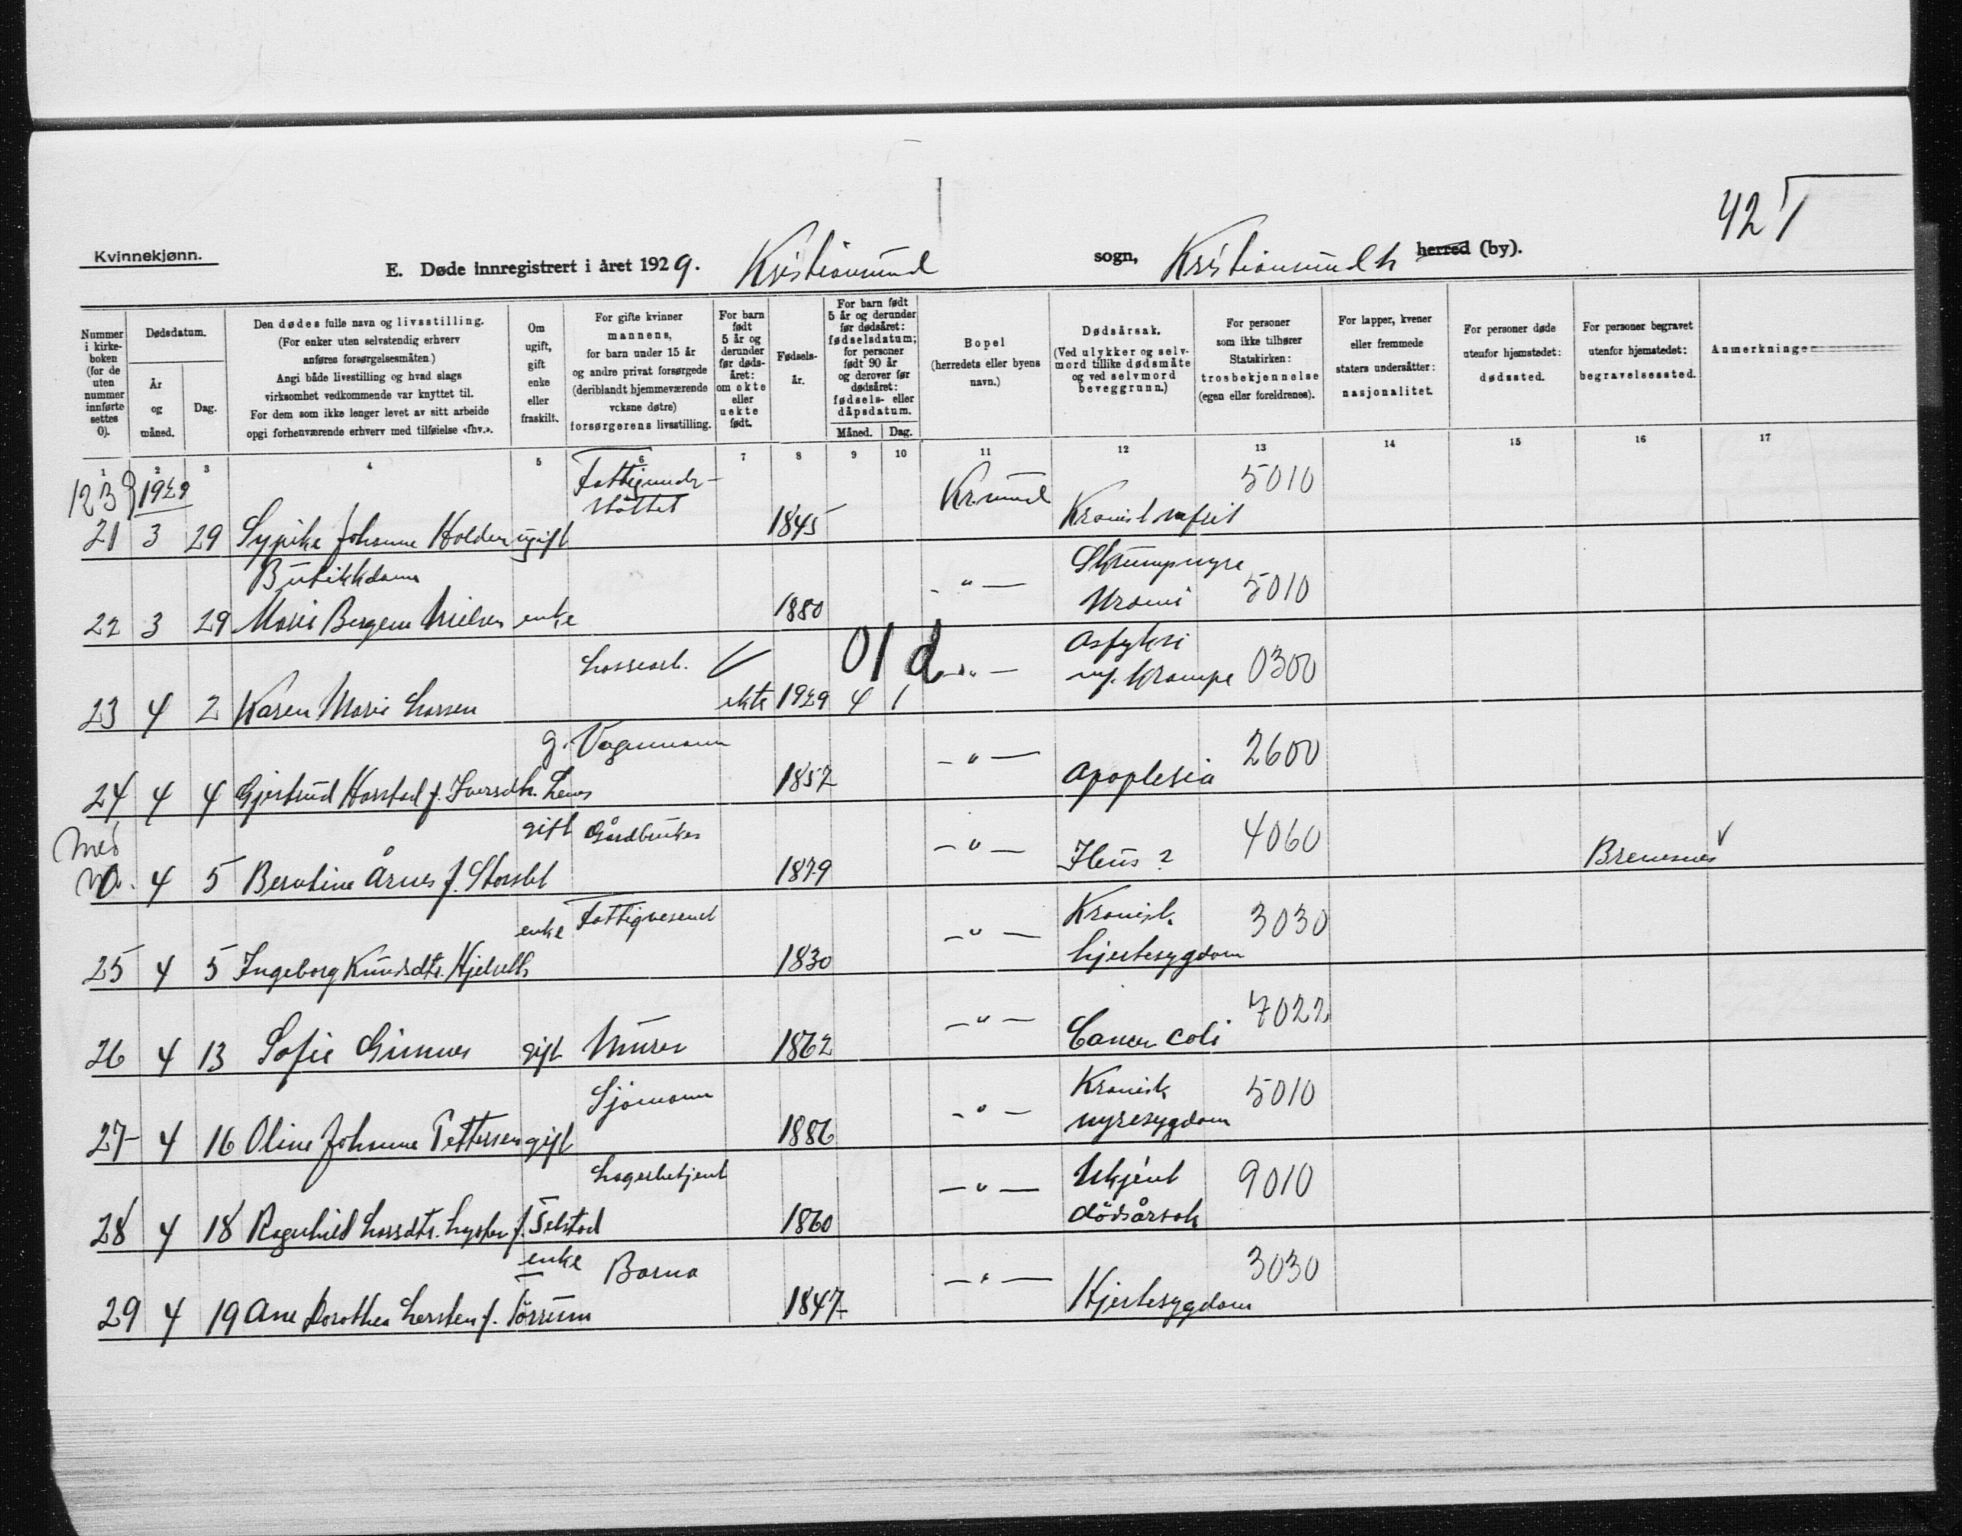 42 T
Kvinnekjønn.
E. Døde innregistrert i året 1929. Kristiansund sogn, Kristiansund N herred (by).
Nummer i kirkeboken (for de uten nummer innførte settes 0).
Dødsdatum.
År og måned.
Dag.
Den dødes fulle navn og livsstilling.
(For enker uten selvstendig erhverv anføres forsørgelsesmåten.)
Angi både livsstilling og hvad slags virksomhet vedkommende var knyttet til.
For dem som ikke lenger levet av sitt arbeide opgi forhenværende erhverv med tilføielse «fhv.».
Om ugift, gift enke eller fraskilt.
For gifte kvinner mannens, for barn under 15 år og andre privat forsørgede (deriblandt hjemmeværende voksne døtre) forsørgerens livsstilling.
For barn født 5 år og derunder før dødsåret: om ekte eller uekte født.
Fødselsår.
For barn født 5 år og derunder før dødsåret: fødselsdatum; for personer født 90 år og derover før dødsåret: fødsels- eller dåpsdatum.
Måned. Dag.
Bopel
(herredets eller byens navn.)
Dødsårsak.
(Ved ulykker og selvmord tillike dødsmåte og ved selvmord beveggrunn.)
For personer som ikke tilhører Statskirken: trosbekjennelse (egen eller foreldrenes).
For lapper, kvener eller fremmede staters undersåtter: nasjonalitet.
For personer døde utenfor hjemstedet: dødssted.
For personer begravet utenfor hjemstedet: begravelsessted.
Anmerkninger
1 2 3 4 5 6 7 8 9 10 11 12 13 14 15 16 17
123 1929 Fattigunderstøttet Kr.sund 5010
21 3 29 Johanne Holden ugift 1845
Butikkdame Skrumpnyre
22 3 29 Marie Bergem Nielsen enke 1880 -"- Uremi 5010
Lossearb. V 01 d -"- Asfyksi
23 4 2 Karen Marie Larsen ekte 1929 4 1 krampe 0300
g. Vognmann -"- 2600
24 4 4 Gjertrud Harstad f. Iversdtr. 1852 Apoplesia
Med gift Gårdbruker -"- 4060
0 4 5 Berntine Årnes f. 1879 Ileus ? Bremsnes V
enke Fattigvesenet -"- Kronisk 3030
25 4 5 Ingeborg Knudsdtr. 1830 hjertesygdom
26 4 13 Sofie gift Murer 1862 -"- Cancer coli 7022
Sjømann Kronisk 5010
27 4 16 Oline Johanne Pettersen gift 1886 -"- nyresygdom
Lagerbetjent -"- Ukjent 9010
28 4 18 Ragnhild Larsdtr. f. 1860 dödsårsak
enke Barna -"- 3030
29 4 19 Ane Dorothea f. 1847 Hjertesygdom